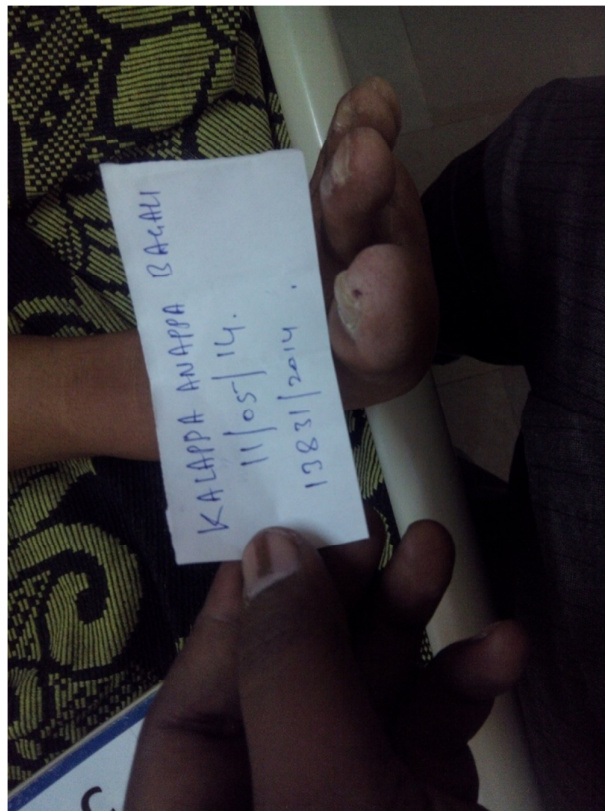 KALAPPA ANAPPA BAGALI
11/05/14.
13831/2014.
C